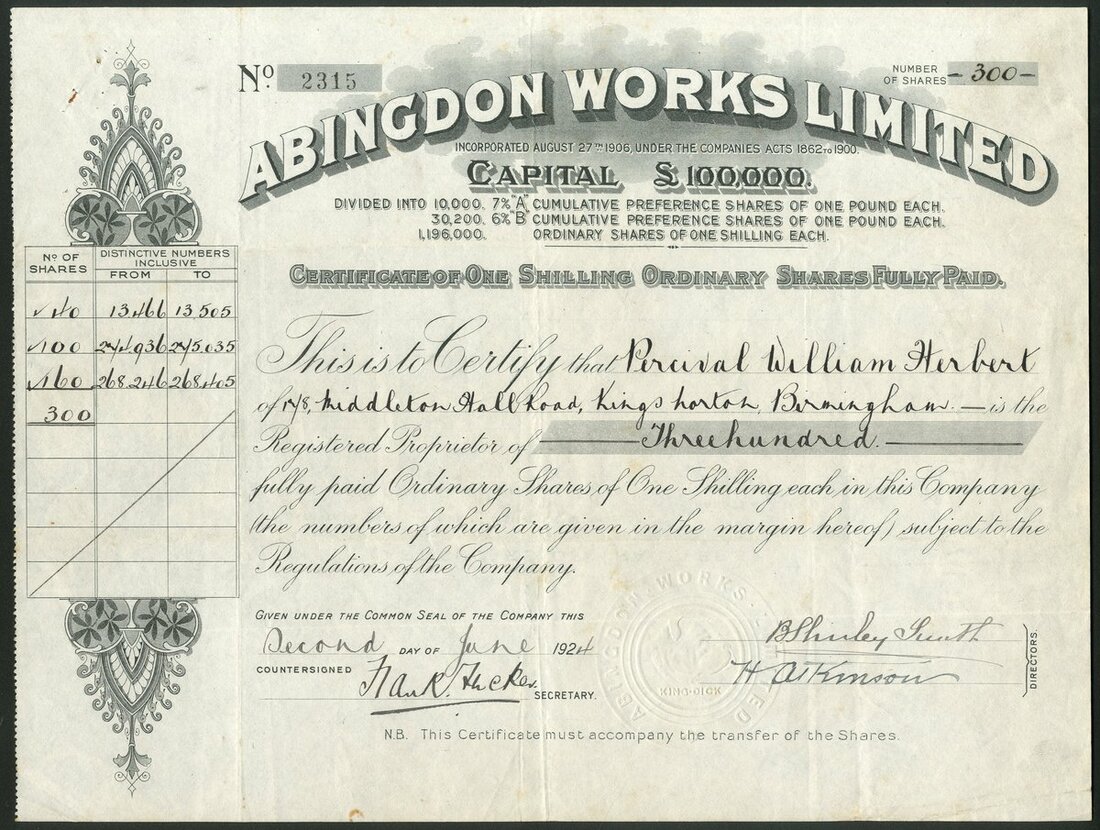 Nº. 2315
NUMBER OF SHARES - 300 -
ABINGDON WORKS LIMITED
INCORPORATED AUGUST 27TH 1906, UNDER THE COMPANIES ACTS 1862 TO 1900.
CAPITAL £100,000.
DIVIDED INTO 10,000. 7% "A" CUMULATIVE PREFERENCE SHARES OF ONE POUND EACH.
30,200. 6% "B" CUMULATIVE PREFERENCE SHARES OF ONE POUND EACH.
1,196,000. ORDINARY SHARES OF ONE SHILLING EACH.
CERTIFICATE OF ONE SHILLING ORDINARY SHARES FULLY PAID.
Nº OF SHARES DISTINCTIVE NUMBERS INCLUSIVE
FROM TO
40 13,466 13,505
100 274,936 275,035
160 268,246 268,405
300
This is to Certify that Percival William Herbert
of 178, Middleton Hall Road, Kings Norton, Birmingham. — is the
Registered Proprietor of — Three hundred. —
fully paid Ordinary Shares of One Shilling each in this Company
(the numbers of which are given in the margin hereof) subject to the
Regulations of the Company.
GIVEN UNDER THE COMMON SEAL OF THE COMPANY THIS
Second DAY OF June 1924
COUNTERSIGNED Frank. SECRETARY.
B Shirley Smith
H Atkinson
DIRECTORS.
ABINGDON WORKS LIMITED
KING-DICK
N.B. This Certificate must accompany the transfer of the Shares.